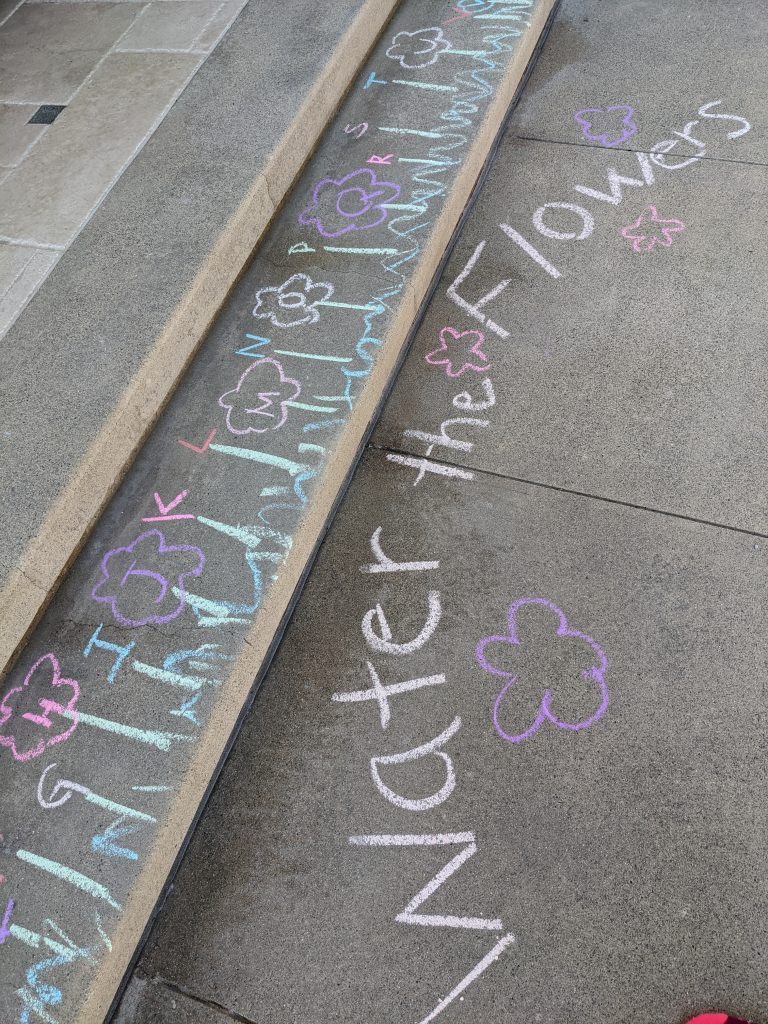 G H I J K L M N O P Q R S T U V
Water the Flowers